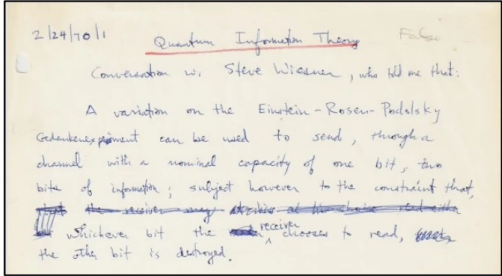 2/24/70/1 Quantum Information Theory
Conversation w. Steve Wiesner, who told me that:
A variation on the Einstein-Rosen-Podolsky
Gedankenexpment can be used to send, through a
channel with a nominal capacity of one bit, two
bits of information; subject however to the constraint that,
whichever bit the receiver chooses to read,
the other bit is destroyed.